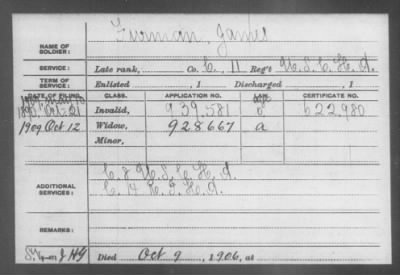 NAME OF SOLDIER: Furman, James
SERVICE: Late rank, Co. C, 11 Reg't U.S.C.H.A.
TERM OF SERVICE: Enlisted , 1 Discharged , 1
DATE OF FILING. CLASS. APPLICATION NO. LAW. CERTIFICATE NO.
1890 Oct. 21 Invalid, 939.581 622.980
1909 Oct 12 Widow, 928667 a
Minor,
ADDITIONAL SERVICES: U.S.C.H.A.
C. H.A.
REMARKS:
Died Oct 9, 1906, at